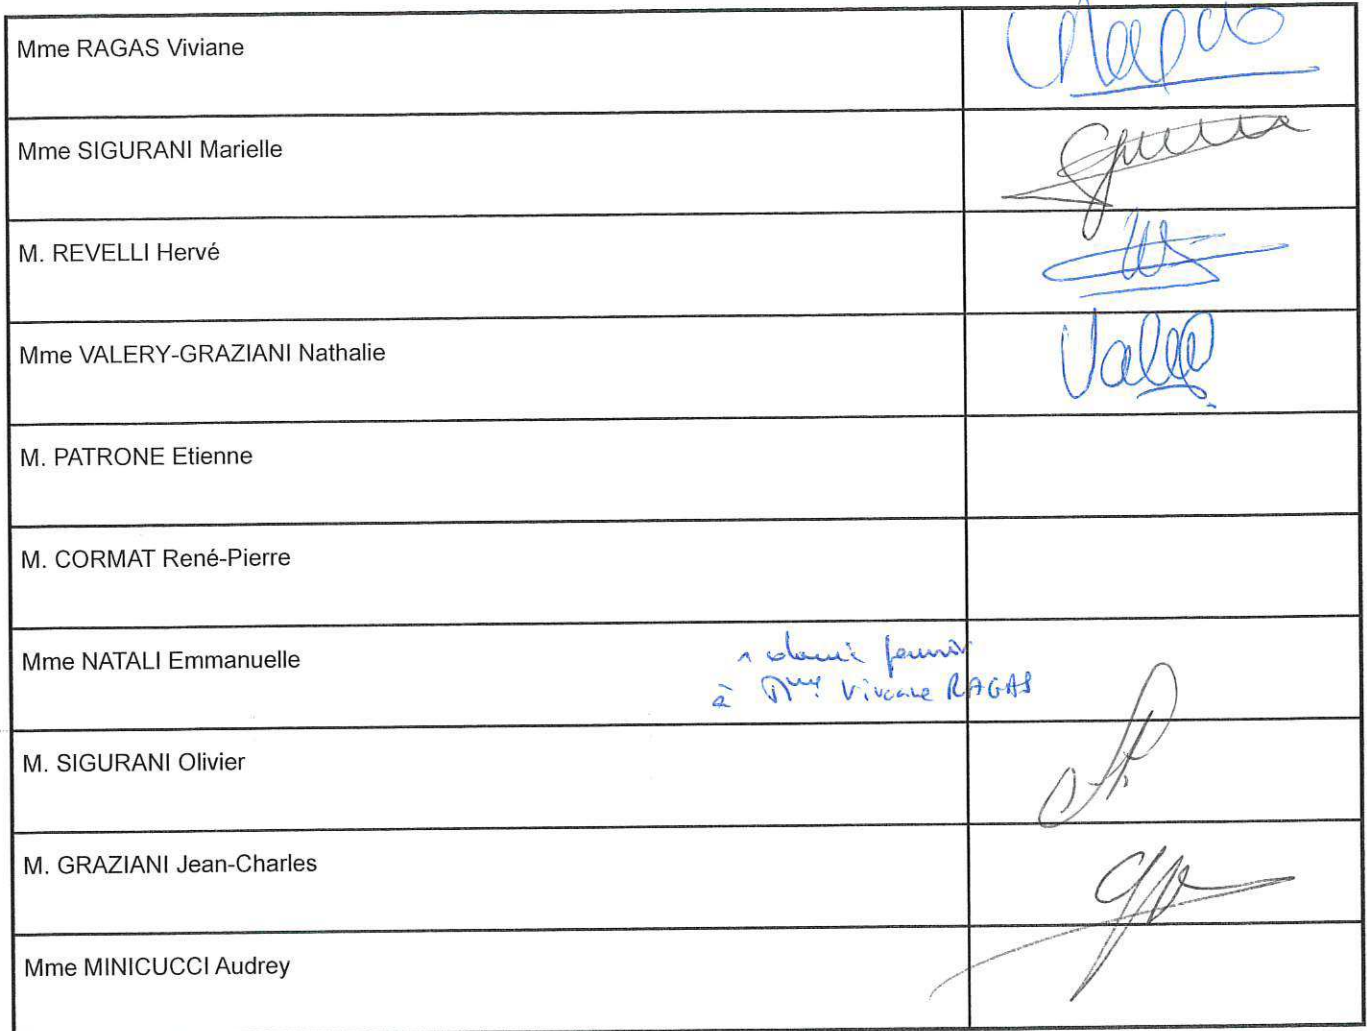 Mme RAGAS Viviane
Mme SIGURANI Marielle
M. REVELLI Hervé
Mme VALERY-GRAZIANI Nathalie
M. PATRONE Etienne
M. CORMAT René-Pierre
Mme NATALI Emmuanuelle
à Mme Viviane RAGAS
M. SIGURANI Olivier
M. GRAZIANI Jean-Charles
Mme MINICUCCI Audrey